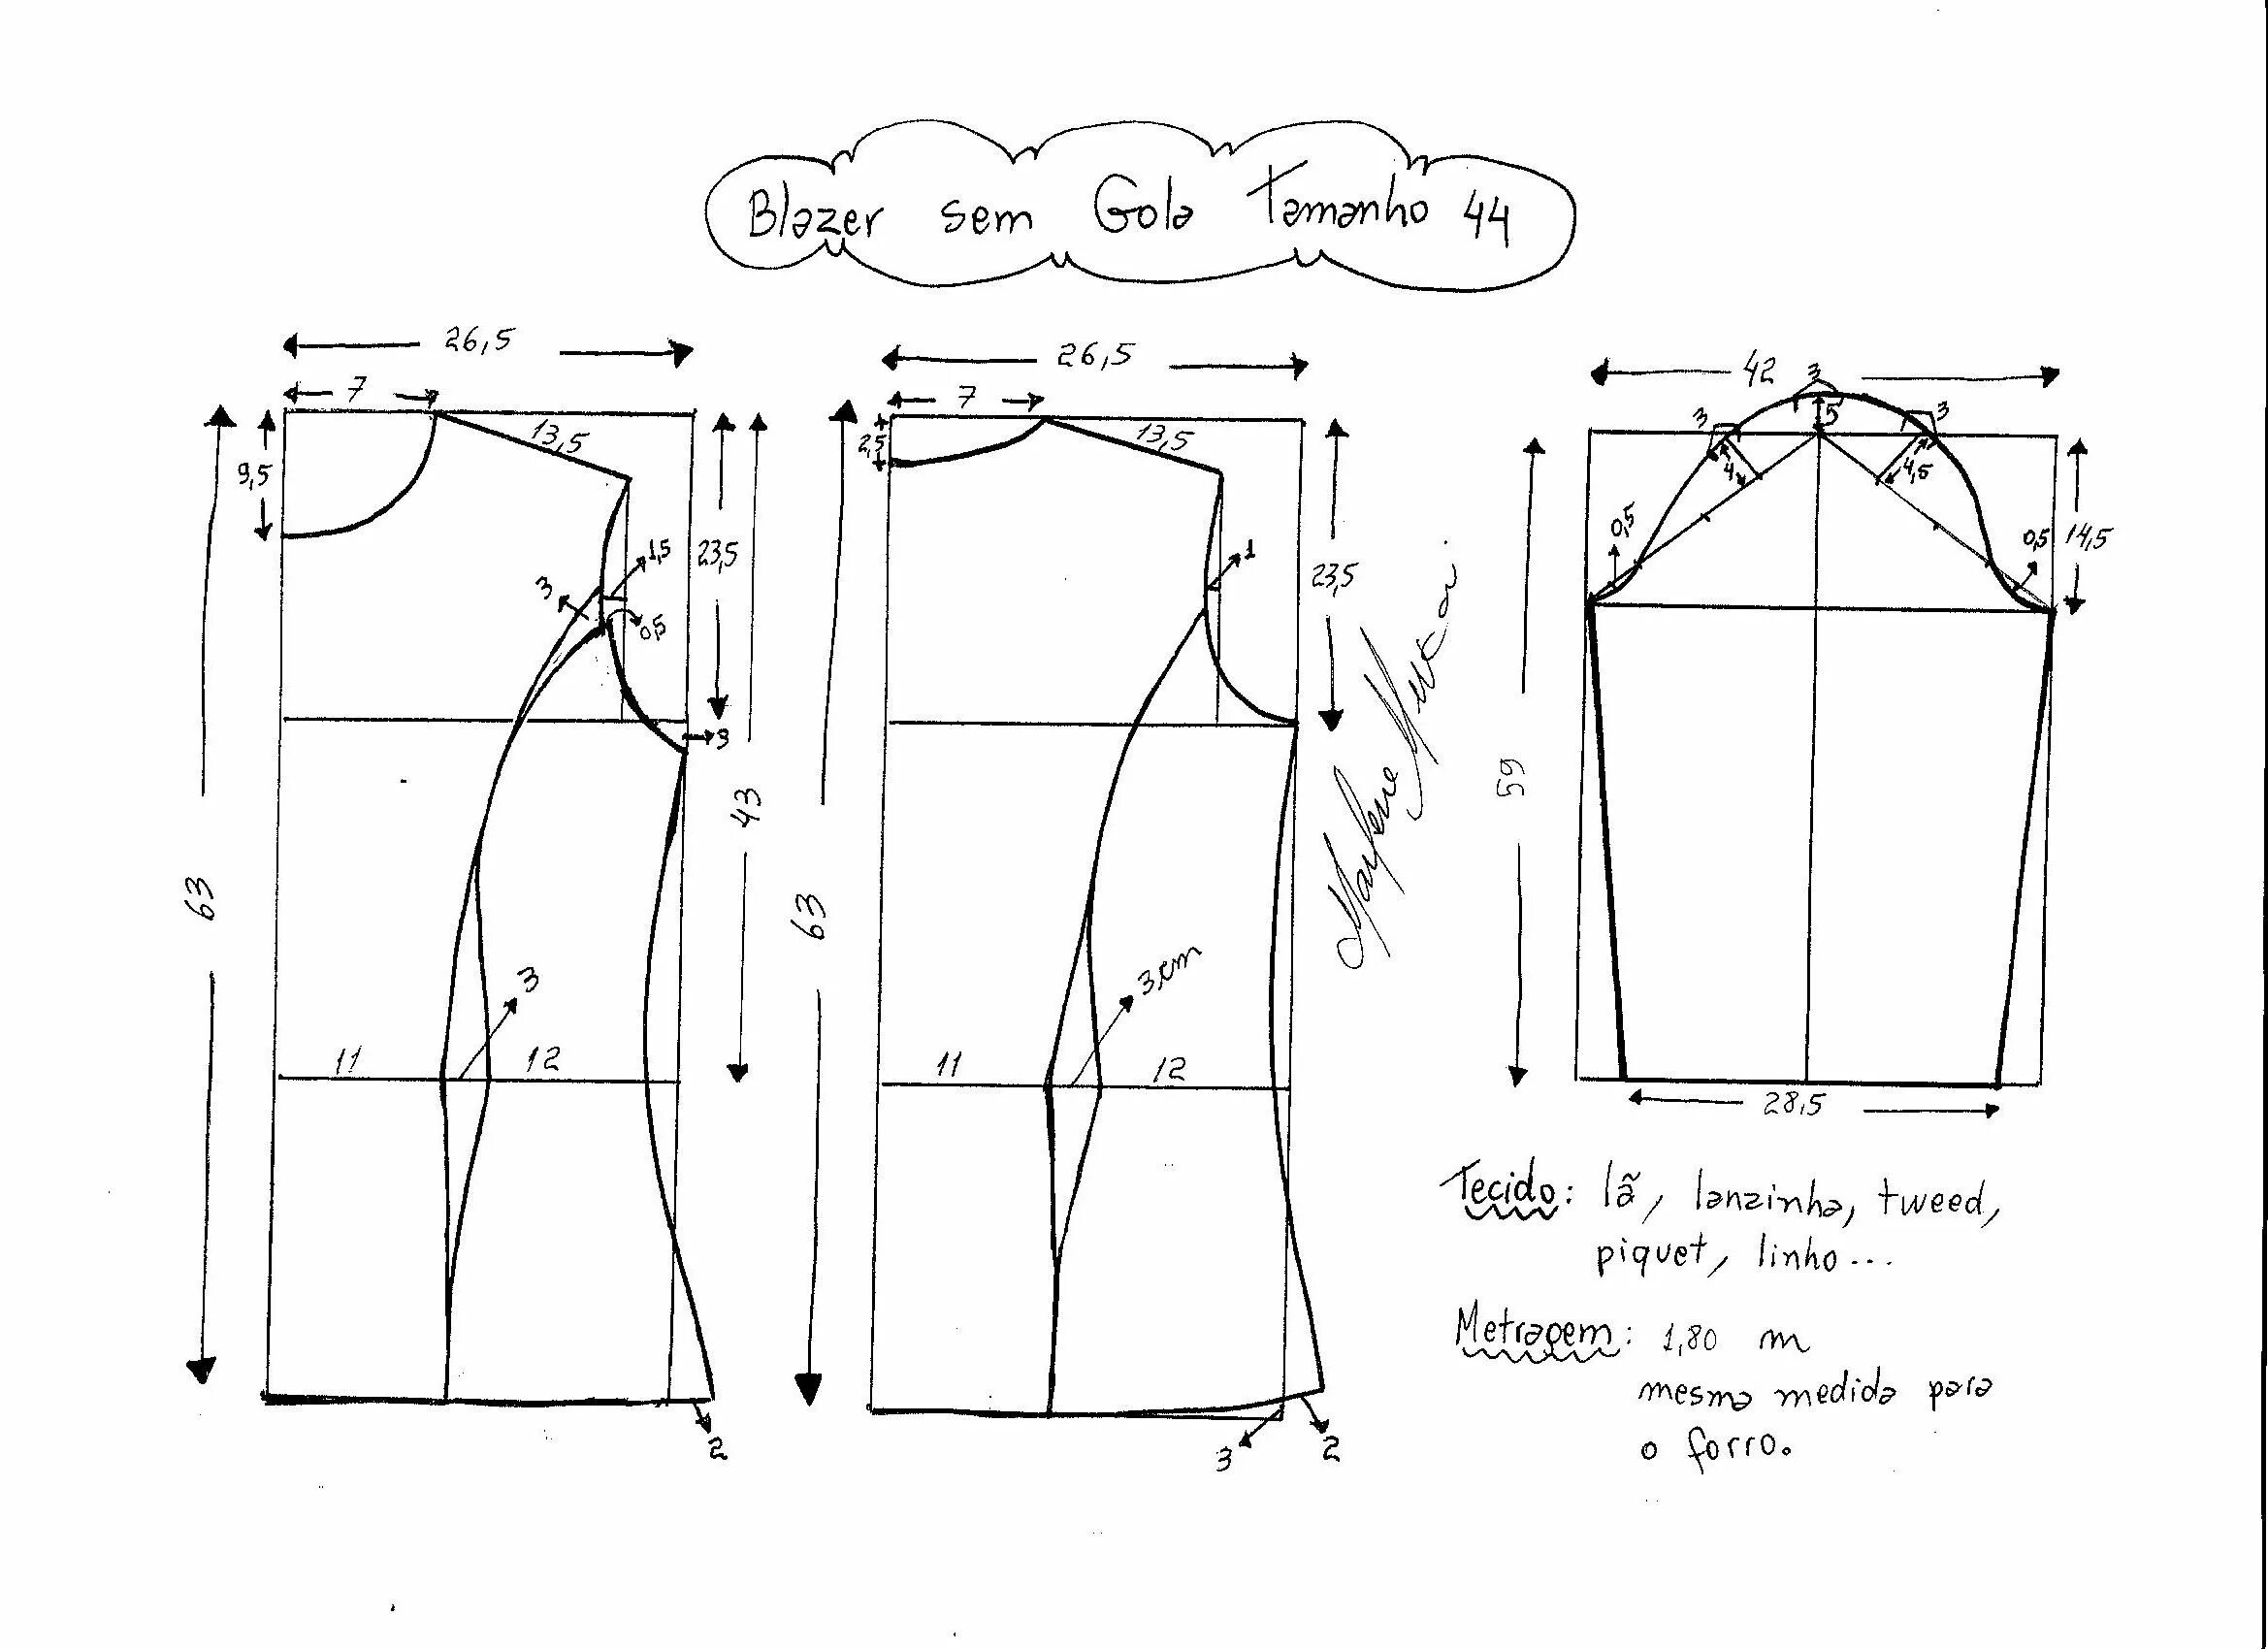 Blazer sem Gola Tamanho 44
26,5
7
13,5
9,5
1,5
3
0,5
23,5
3
43
63
3
11
12
2
26,5
7
2,5
13,5
1
23,5
63
3cm
11
12
3
2
42
3
5
3
3
4
4,5
0,5
0,5
14,5
59
28,5
Tecido: lã, lanzinha, tweed,
piquet, linho...
Metragem: 1,80 m
mesma medida para
o forro.